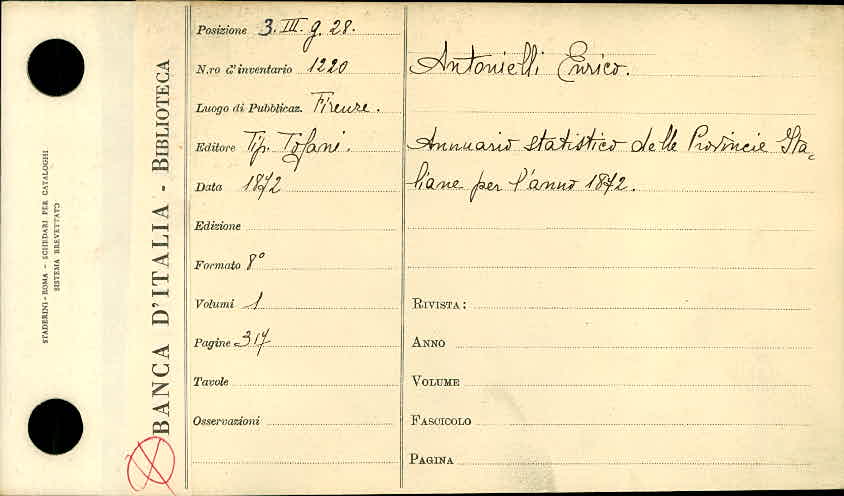 STADERINI-ROMA - SCHEDARI PER CATALOGHI
SISTEMA BREVETTATO
BANCA D'ITALIA - BIBLIOTECA
Posizione 3. III. g. 28.
N.ro d'inventario 1220
Luogo di Pubblicaz. Firenze.
Editore Tip. Tofani.
Data 1872
Edizione
Formato 8°
Volumi 1
Pagine 317
Tavole
Osservazioni
Antonielli Enrico.
Annuario statistico delle Provincie Ita-
liane per l'anno 1872.
RIVISTA:
ANNO
VOLUME
FASCICOLO
PAGINA